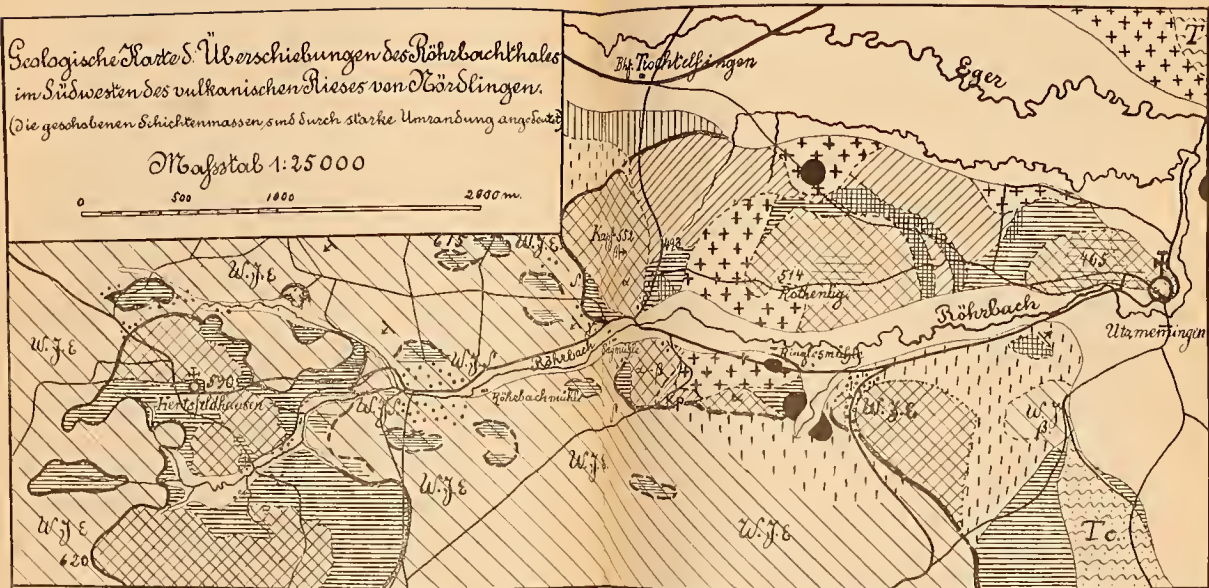 Geologische Karte d. Überschiebungen des Röhrbachthales
im Südwesten des vulkanischen Rieses von Nördlingen.
(die geschobenen Schichtenmassen sind durch starke Umrandung angedeutet)
Maßstab 1:25000
0 500 1000 2000 m.
Bhf. Trochtelfingen
Eger
T
W. J. E
W. J. E
Kapf 552
α
493
514
Röthenbg.
465
Röhrbach
Utzmemmingen
W. J. E
590
Hertsfeldhausen
W. J. δ
Röhrbach
Sägmühle
Ringlesmühle
Röhrbachmühle
β
α
Kp
W. J. E
W. J. β
W. J. δ
W. J. E
W. J. δ
W. J. E
620
W. J. E
To